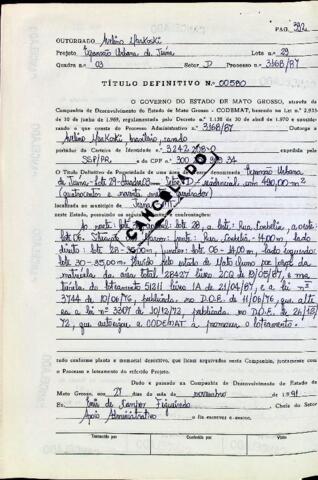 PAG. 392
OUTORGADO Arlino Markoski
Projeto Expansão Urbana de Juína Lote n.º 29
Quadra n.º 03 Setor D Processo n.º 3368/87
TÍTULO DEFINITIVO N.º 00580
O GOVERNO DO ESTADO DE MATO GROSSO, através da
Companhia de Desenvolvimento do Estado de Mato Grosso - CODEMAT, baseado na Lei n.º 2.925
de 10 de junho de 1969, regulamentada pelo Decreto n.º 1.138 de 30 de abril de 1970 e consideran-
do o que consta do Processo Administrativo n.º 3368/87 Outorga a
Arlino Markoski, brasileiro, casado
portador da Carteira de Identidade n.º 3.242.208-0 expedida pela
SSP/PR e do CPF n.º 300 34
o Título Definitivo de Propriedade de uma área de terras denominada Expansão Urbana
de Juína - Lote 29 - Quadra 03 - Setor D - residencial com 490,00 m2
(quatrocentos e noventa metros quadrados)
localizada no município de Juína
neste Estado, possuindo os seguintes limites e confrontações:
ao norte: lote 30, ao sul: lote 28, a leste: Rua, a oeste:
lote 06. frente: Rua - 14,00 m, lado
direito: lote 28 - 35,00 m, fundos: lote 06 - 14,00 m, lado esquerdo:
lote 30 - 35,00 m. Havido pelo Estado de Mato Grosso por força da
matrícula da área total 28427 livro 2CQ de 19/05/87, e ma
trícula do loteamento 51211 livro 1A de 21/04/87, e a lei nº
3744 de 10/06/76, publicada no D.O.E. de 11/06/76, que alte
ra a lei nº 3307 de 10/12/72, publicada no D.O.E. de 26/12/
72, que autorizou a CODEMAT a promover o loteamento.
CANCELADO
tudo conforme planta e memorial descritivo, que ficam arquivados nesta Companhia, juntamente com
o Processo e loteamento do referido Projeto.
Dado e passado na Companhia de Desenvolvimento do Estado de
Mato Grosso, aos 21 dias do mês de novembro de 1991.
Eu, Enis de Campos Figueiredo Chefe do Setor
Apoio Administrativo o fiz escrever e assino.
Transcrito por Conferido por Visto